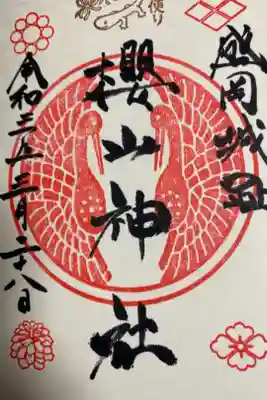 盛岡城址
櫻山神社
令和三年三月二十八日